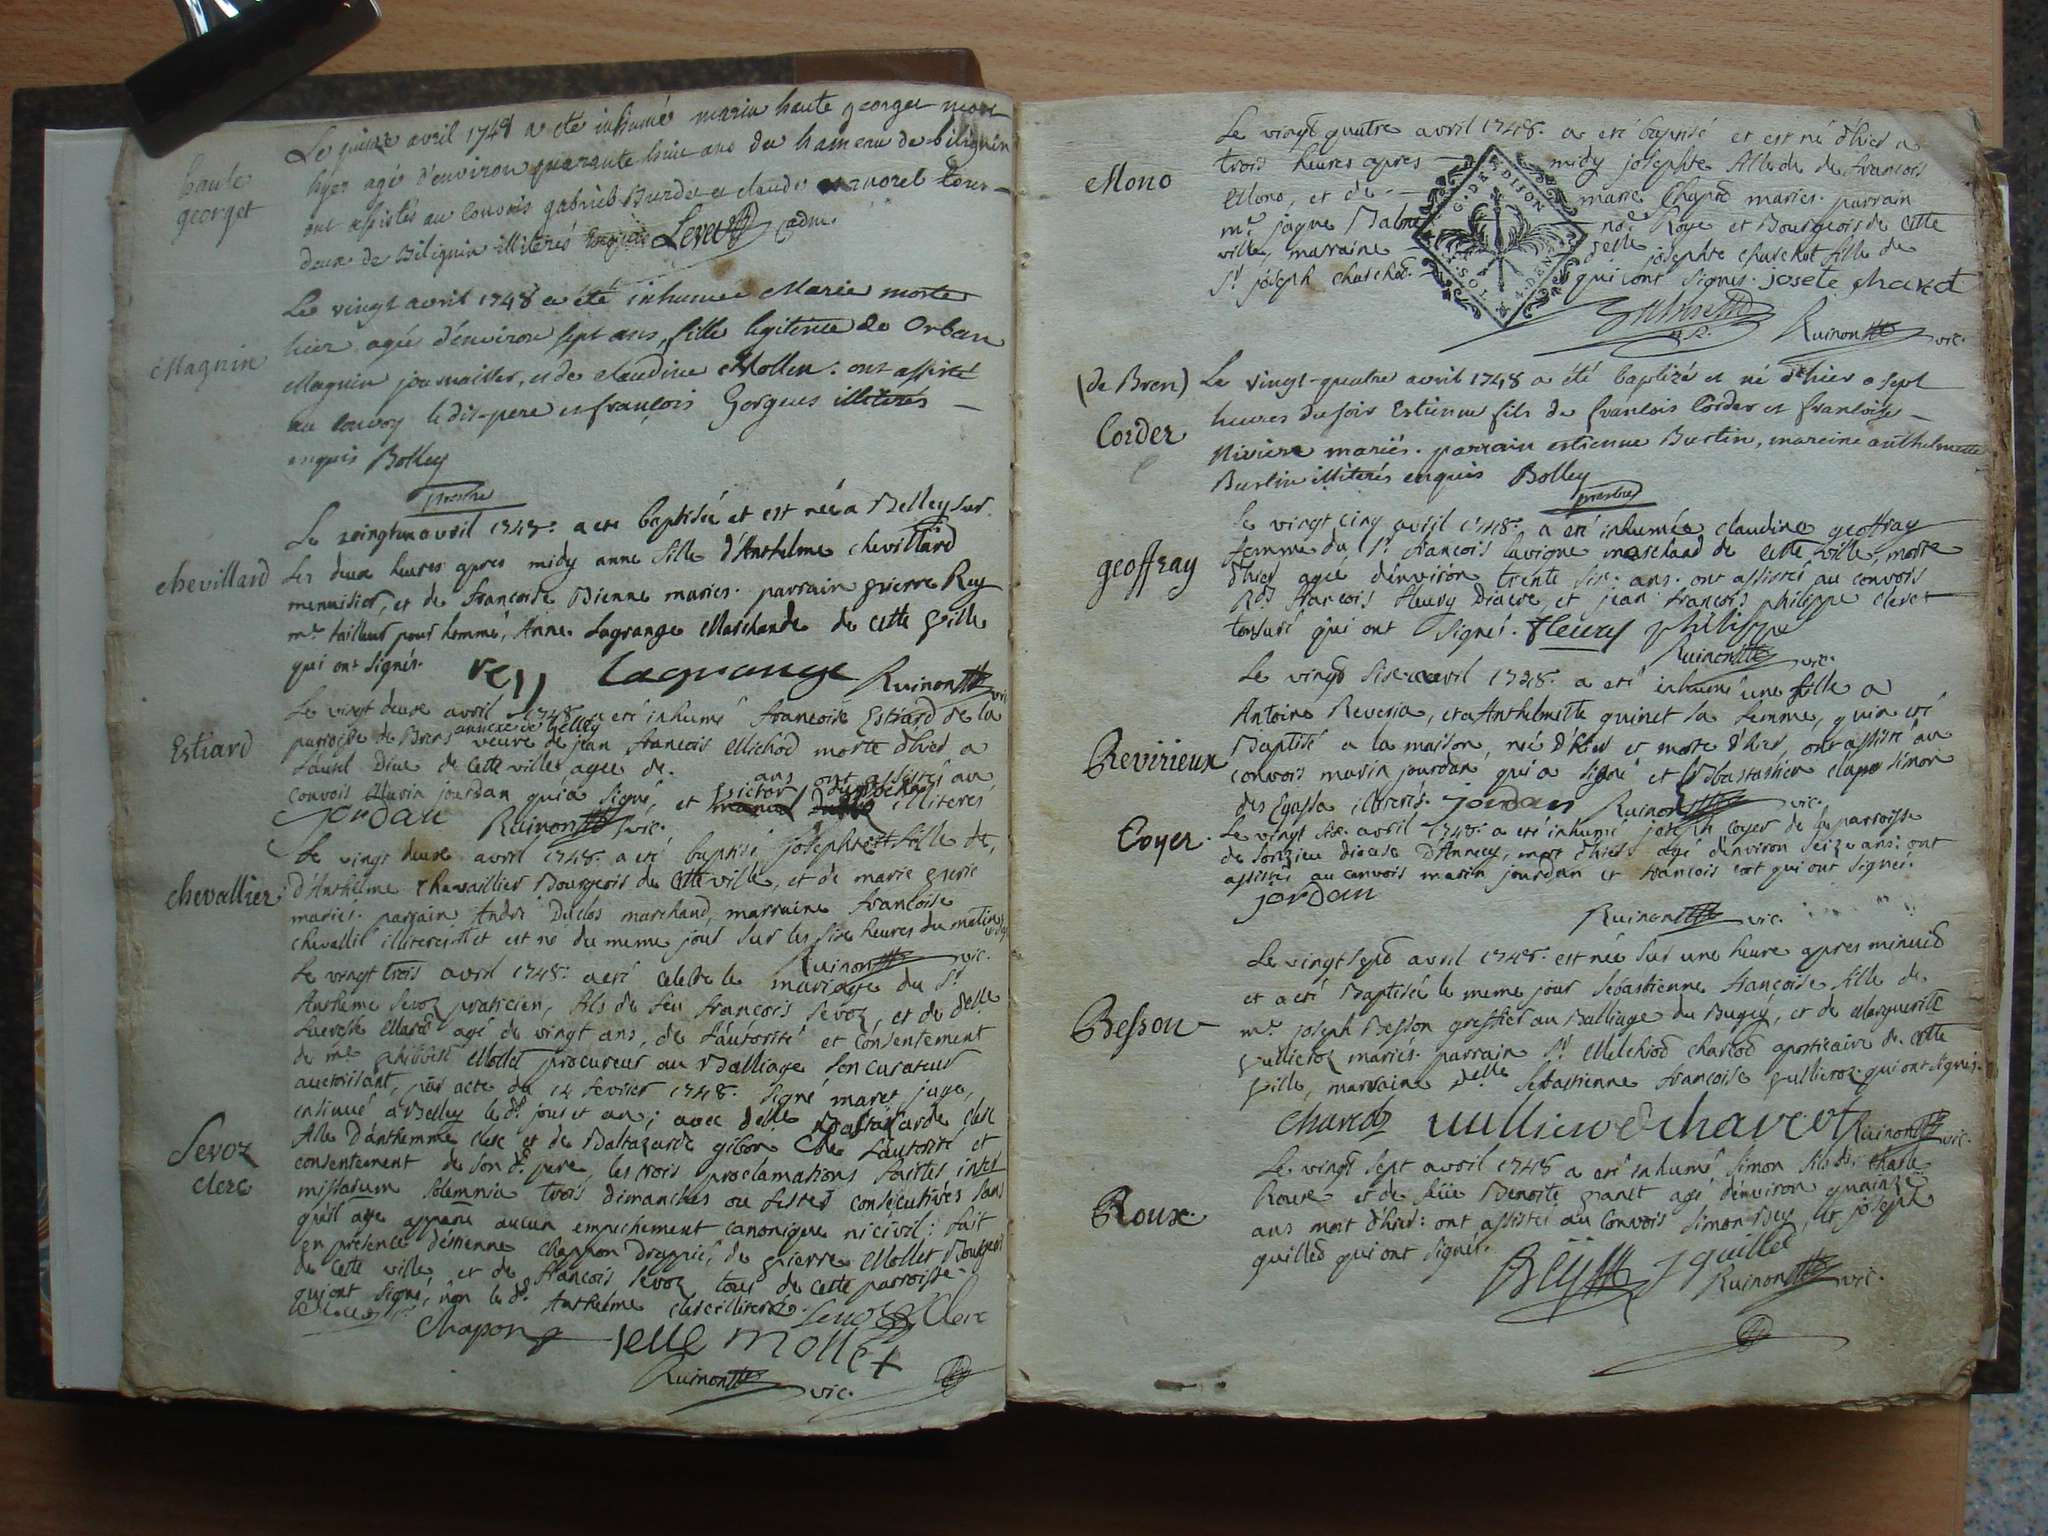 haute
georget
Le quinze avril 1748 a ete inhumé marin haute georget mort
hyer agé d'environ quarante huit ans du hameau de biliguin
ont assistés au convois gabriel Burdet et claude morel tous
deux de Biliguin illiterés enquis Levet adm.
Magnin
Le vingt avril 1748 a été inhumée Marie morte
hier agée d'environ sept ans, fille legitime de Orban
Magnin journaillier, et de claudine Mollin: ont assisté
au convoy le dit pere et françois Gorgues illiterés
enquis Bolley
prestre
chevillard
Le vingt un avril 1748. a ete baptisée et est née a Belley sur
les deux heures apres midy anne fille d'Anthelme chevillard
menuisier, et de francoise Dienne mariés. parrain pierre Rey
mre. tailleur pour homme, Anne Lagrange Marchande de cette ville
qui ont signés. rey lagrange Ruinon vic.
Estiard
Le vingt deux avril 1748 a eté inhumé francoise Estiard de la
parroisse de Brens annexe de Belley veuve de jean francois Michod morte d'hier a
convois Marin jourdan qui a signé, et victor illiteré
ans ont assistés au
jordan Ruinon vic.
chevallier
Le vingt deux avril 1748. a eté baptisé josephte fille de,
d'Anthelme chevaillier Bourgeois de cette ville, et de marie
mariés. parrain André Duclos marchand, marraine francoise
chevallie illiterés et est né du meme jour sur les six heures du matin
Ruinon vic.
Sevoz
clerc
Le vingt trois avril 1748. a eté celebré le mariage du Sr
Anthelme Sevoz praticien, fils de feu francois Sevoz, et de delle
agé de vingt ans, de l'autorité et consentement
de me philibert Mollet procureur au Balliage son curateur
auctorisant, par acte du 14 fevrier 1748. signé maret juge,
insinué a Belley le d. jour et an; avec delle Baltazarde clerc
fille d'anthemme clerc et de Baltazarde gibon de l'autorité et
consentement de son d. pere, les trois proclamations faites inter
missarum solemnia trois dimanches ou festes consécutives sans
qu'il aye apparu aucun empechement canonique ni civil: fait
en présence d'étienne chappon drappié, de pierre Mollet Bourgeois
de cette ville et de francois Sevoz tous de cette parroisse
qui ont signé, non le d. Anthelme clerc illiteré. Sevoz Clerc
Chapon mollet
Ruinon vic.
Mono
Le vingt quatre avril 1748. a eté baptisé et est né d'hier a
trois heures apres midy josephte fille de francois
Mono, et de marie Chapre mariés. parrain
mr. jaque Balme nore. Roye et Bourgeois de cette
ville, marraine delle josephte charchot fille de
Sr joseph charchot. qui ont signés. josete charcot
G. DE DISON
Ruinon vic.
(de Bren)
Corder
Le vingt-quatre avril 1748 a été baptizé et né d'hier a sept
heures du soir Estienne fils de françois Corder et françoise
Riviere mariés. parrain estienne Burtin, mareine anthelmette
Burtin illiterés enquis Bolley
prestre
geoffray
Le vingt cinq avril 1748. a eté inhumée claudine geoffray
femme du Sr. francois lavigne marchand de cette ville, morte
d'hier agée d'environ trente six ans. ont assistés au convois
Rds francois fleury Diacre, et jean francois philippe clerc
tonsuré qui ont signé. fleury philippe
Ruinon vic.
Revirieux
Le vingt six avril 1748. a eté inhumé une fille a
Antoine Reveria, et a Anthelmette quinet sa femme, qui a eté
Baptisé a la maison, née d'hier et morte d'hier, ont assisté au
convois marin jourdan qui a signé et Sebastien simon
illiterés. jordan Ruinon vic.
Coyer
Le vingt six avril 1748. a eté inhumé joseph coyer de la parroisse
de diocese d'Annecy, mort d'hier agé d'environ seize ans: ont
assistés au convois marin jourdan et francois qui ont signés.
jordan
Ruinon vic.
Besson
Le vingt sept avril 1748. est née sur une heure apres minuid
et a eté Baptisée le meme jour Sébastienne francoise fille de
mre. joseph Besson greffier au Balliage du Bugey, et de Marguerite
vullieroz mariés. parrain Sr. Melchiod charcod apoticaire de cette
ville, marraine delle Sébastienne francoise vullieroz qui ont signés.
Ruinon vic.
Roux
Le vingt sept avril 1748 a eté inhumé Simon fils de charle
Roux et de feüe Benoite agé d'environ quainze
ans mort d'hier: ont assistés au convois Simon Bey, et joseph
quilled qui ont signés. Bey J quilled
Ruinon vic.